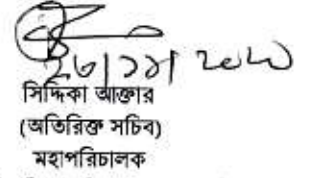 ২৬/১১/২০২০
সিদ্দিকা আক্তার
(অতিরিক্ত সচিব)
মহাপরিচালক